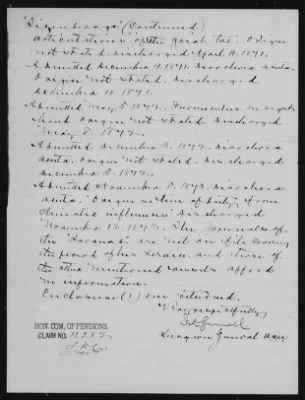 "Ticonderoga" (Continued)
articulationis" of the Origin
not stated. Discharged April 11, 1871.
Admitted December 4, 1871. Diarrhoea acuta.
Origin not stated. Discharged
December 10, 1871.
Admitted May 5, 1872. Furunculus on right
hand. Origin not stated. Discharged
May 8, 1872.
Admitted December 3, 1872. Diarrhoea
acuta. Origin not stated. Discharged
December 5, 1872.
Admitted November 8, 1873. Diarrhoea
acuta. Origin in line of duty from
climatic influences. Discharged
November 13, 1873. The journals of
the are not on file covering
the period of his service, and those of
the other mentioned vessels afford
no information.
Enclosure (1) one returned.
Very respectfully,
Surgeon General Navy
HON. COM. OF PENSIONS.
CLAIM NO. 11,282